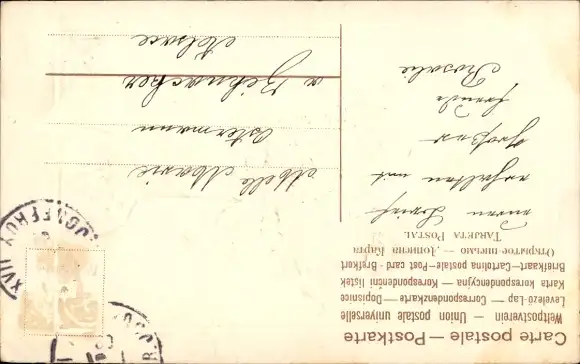 Carte postale — Postkarte
Weltpostverein — Union postale universelle
Levelező-Lap — Correspondenzkarte — Dopisnice
Karta korespondencyjna — Korespondenční lístek
Briefkaart — Cartolina postale — Post card - Brefkort
Открытое письмо — Дописна Карта
TARJETA POSTAL
erhalten mit
großer
freude
Rosalie
Melle Marie
Ostermann
a
Alsace
XVII